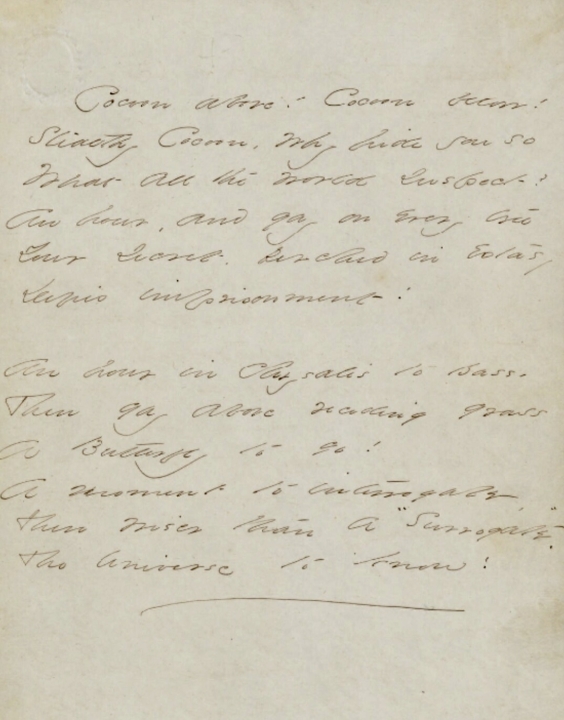 Cocoon above! Cocoon below!
Stealthy Cocoon, why hide you so
What all the world suspect?
An hour, and gay on every tree
Your secret, perched in extasy
Defies imprisonment!
An hour in Chrysalis to pass,
Then gay above receding grass
A Butterfly to go!
A moment to interrogate,
Then wiser than a "Surrogate,"
The Universe to know!